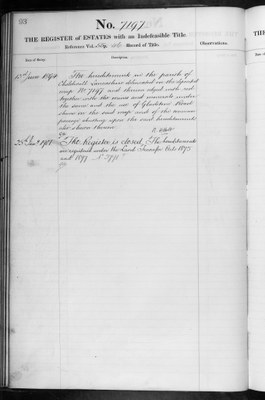 No. 7197
THE REGISTER of ESTATES with an Indefeasible Title.
Reference Vol. Record of Title.
Observations.
Date of Entry.
Description.
13th June 1890
The hereditaments in the parish of
Childwall Lancashire delineated on the deposited
map No 7197 and thereon edged with red
together with the mines and minerals under
the same and the site of Gladstone Road
shown on the said map and of the
passage abutting upon the said hereditaments
also shown thereon.
25th Jany 1901
The Register is closed, the hereditaments
are registered under the Land Transfer Acts 1875
and 1897